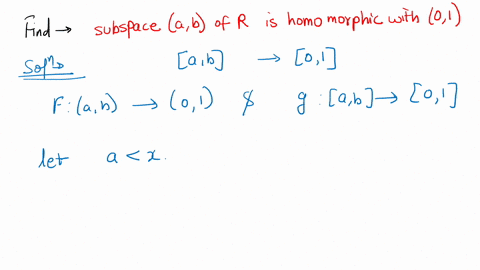 Find → subspace (a,b) of R is homomorphic with (0,1)
Solⁿ→ [a,b] → [0,1]
F:(a,b) → (0,1) $ g:[a,b] → [0,1]
let a < x.